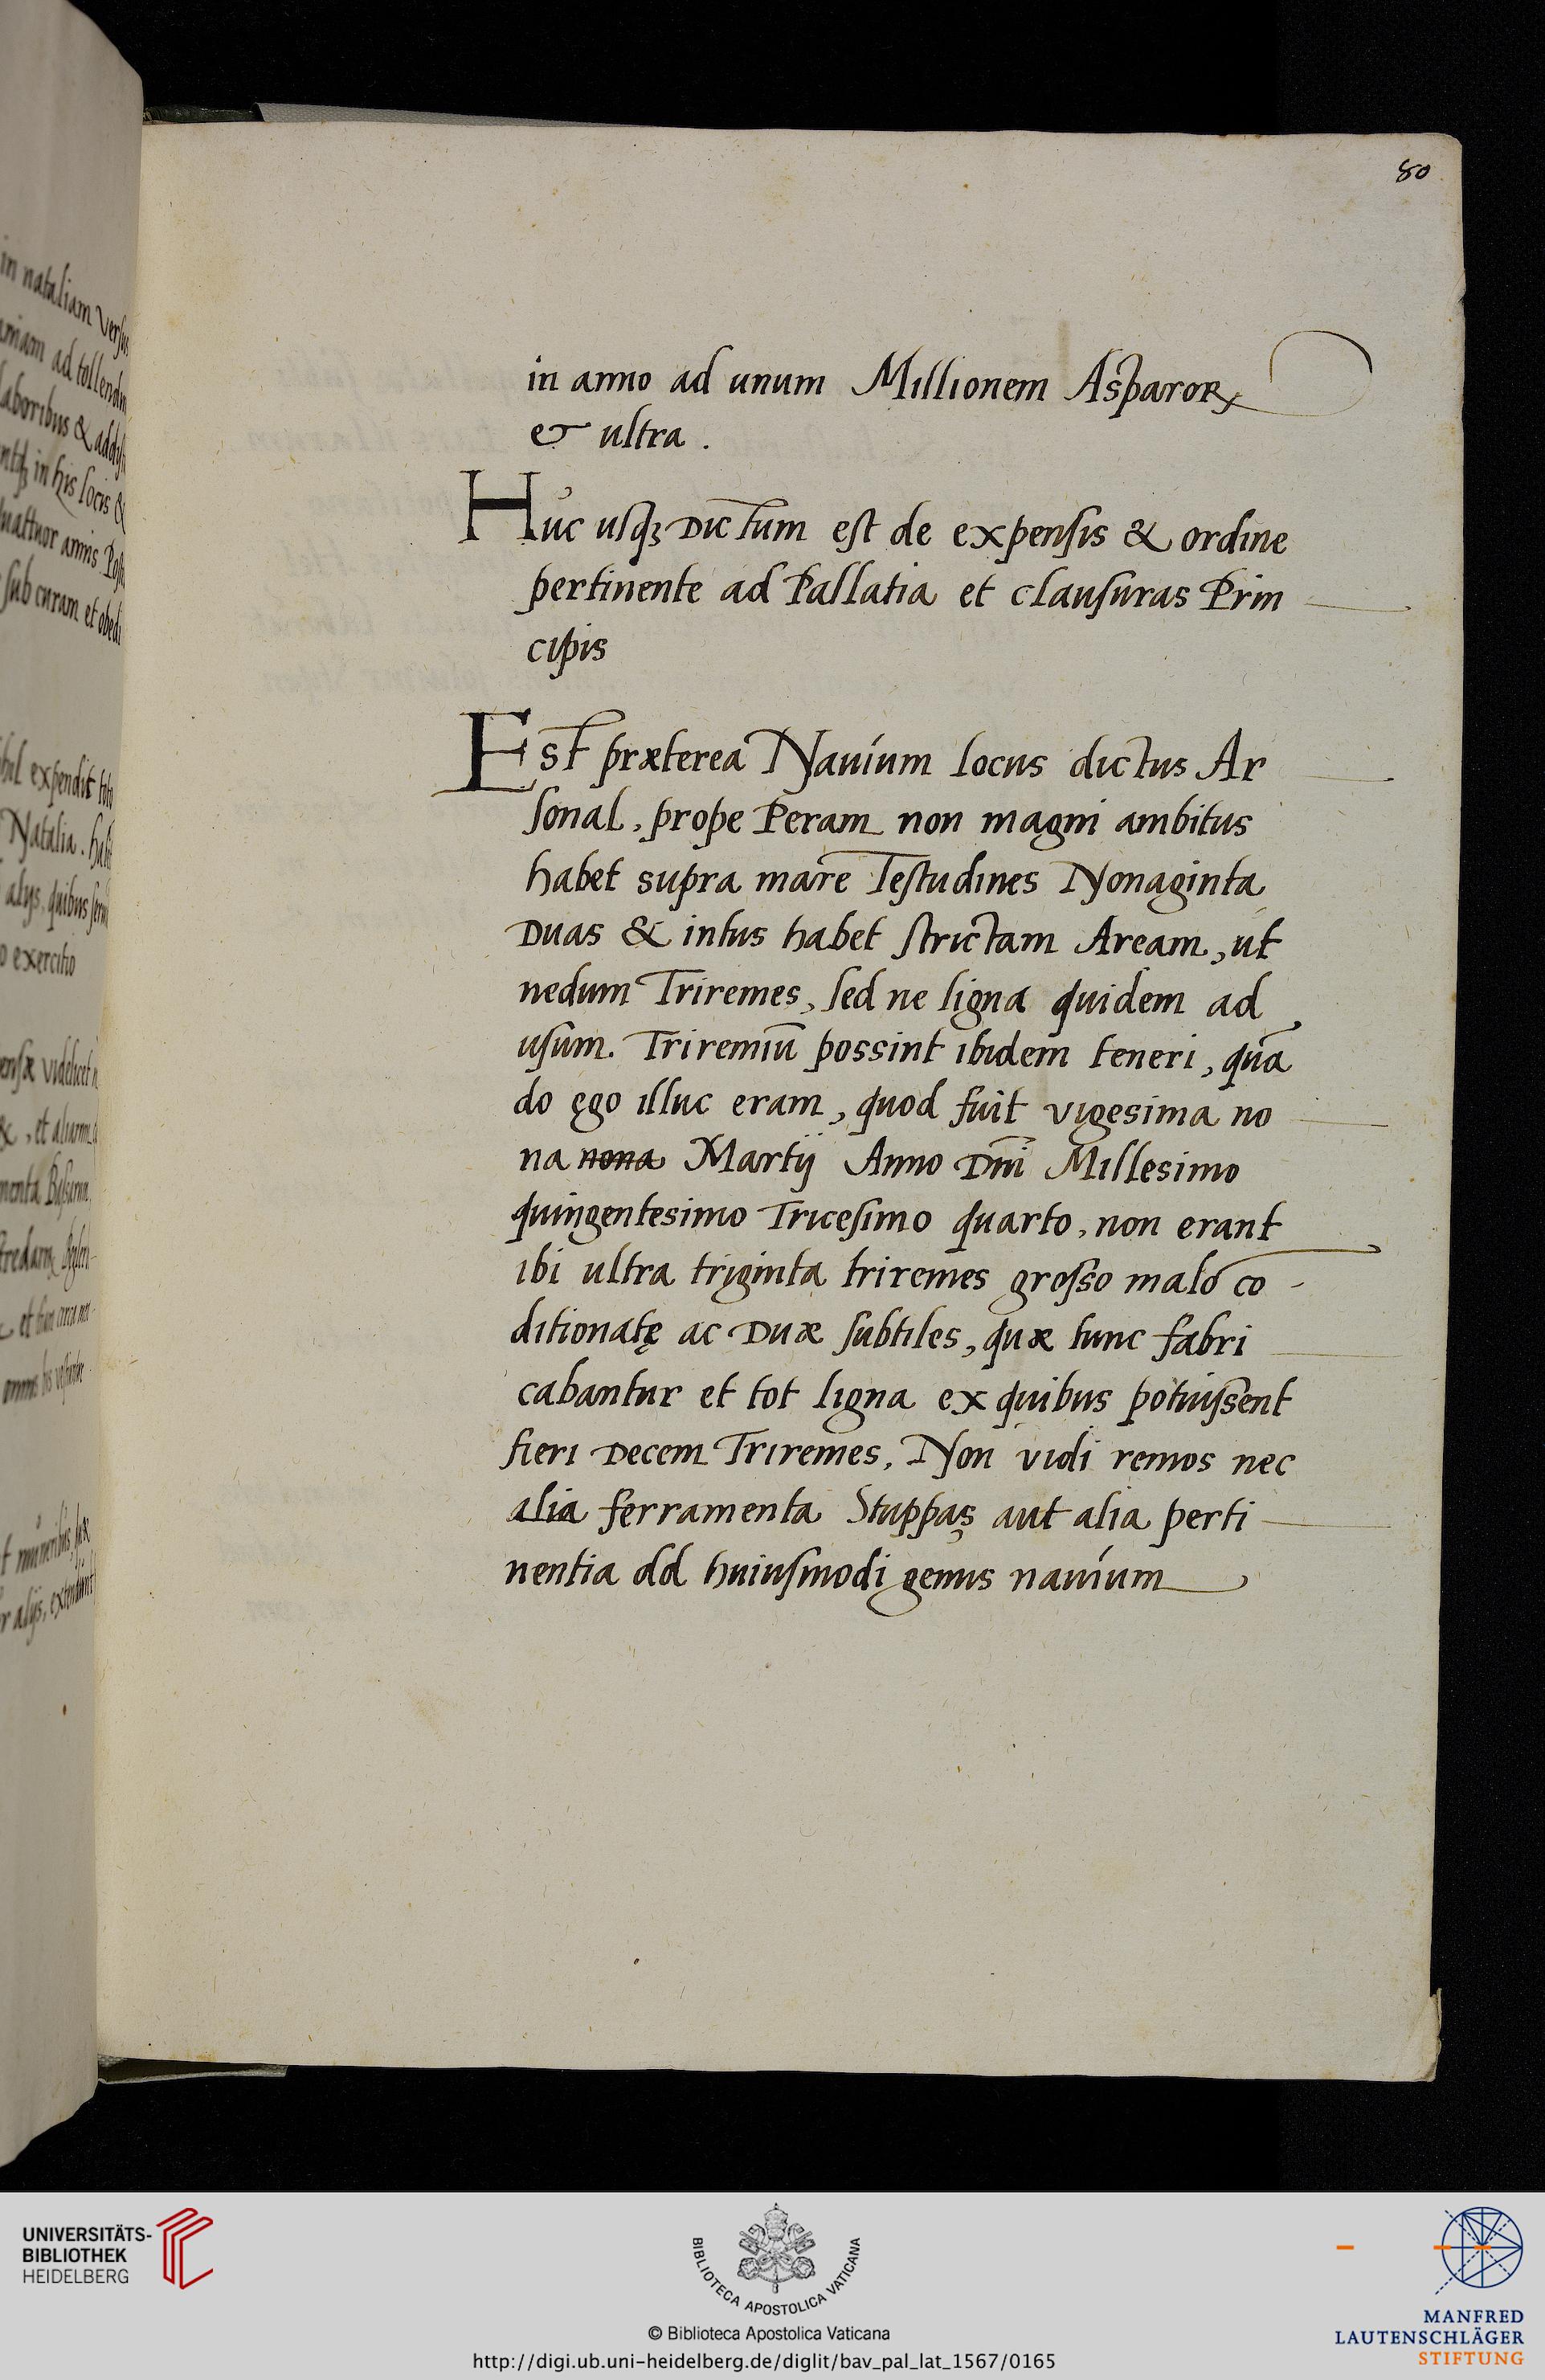 80
in anno ad unum Millionem Asparorꝝ
& ultra.
Huc usqꝫ Dictum est de expensis & ordine
pertinente ad Pallatia et clausuras Prin
cipis
Est præterea Nauium locus dictus Ar
sonal, prope Peram non magni ambitus
habet supra mare Testudines Nonaginta
Duas & intus habet strictam Aream, ut
nedum Triremes, sed ne ligna quidem ad
usum. Triremiū possint ibidem teneri, quā
do ego illuc eram, quod fuit vigesima no
na nona Martij Anno Dm̄i Millesimo
quingentesimo Tricesimo quarto, non erant
ibi ultra triginta triremes grosso malo cō
ditionatę ac Duæ subtiles, quæ tunc fabri
cabantur et tot ligna ex quibus potuissent
fieri Decem Triremes, Non vidi remos nec
alia ferramenta Stuppas aut alia perti
nentia ad huiusmodi genus nauium
in nataliam versus
ad tollendū
laboribus &
in his locis &
annis
sub curam et obedi
expendit
Natalia.
alijs, quibus
exercitio
videlicet
, et aliarum
alijs,
UNIVERSITÄTS-
BIBLIOTHEK
HEIDELBERG
BIBLIOTECA APOSTOLICA VATICANA
© Biblioteca Apostolica Vaticana
http://digi.ub.uni-heidelberg.de/diglit/bav_pal_lat_1567/0165
MANFRED
LAUTENSCHLÄGER
STIFTUNG